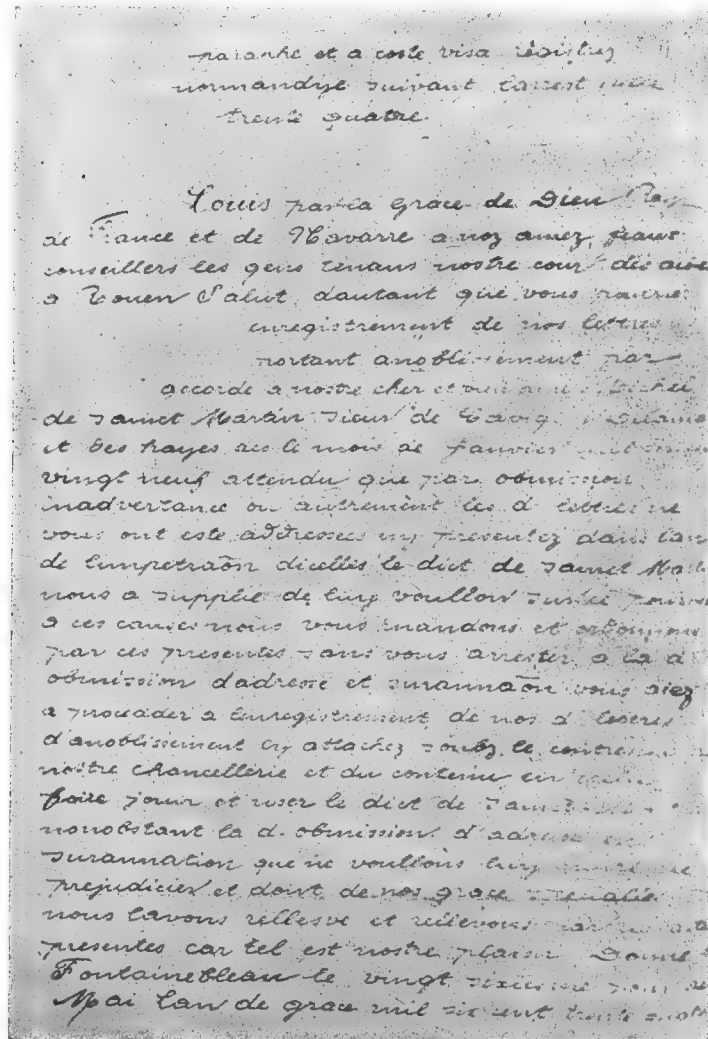 paraphe et a coste visa registrez
normandye suivant larrest
trente quatre
Louis par la grace de Dieu Roy
de France et de Navarre a noz amez feaux
conseillers les gens tenans nostre cour des aides
a Rouen Salut dautant que vous
enregistrement de nos lettres
portant anoblissement par
accorde a nostre cher et
de Sainct Martin Sieur de
et des hayes des le mois de Janvier
vingt neuf attendu que par obmission
inadvertance ou autrement les d. lettres ne
vous ont este addressees ny presentez dans lan
de limpetraõn dicelles le dict de Sainct
nous a supplié de luy voulloir
a ces causes nous vous mandons et ordonnons
par ces presentes sans vous arrester a la d
obmission d'adresse et surannaõn vous aiez
a proceder a lenregistrement de nos d. lettres
d'anoblissement cy attachez soubz le
nostre chancellerie et du contenu en
foire jouir et user le dict de
nonobstant la d. obmission d'adresse
surannation que ne voullons luy
prejudicier et dont de nos grace
nous lavons rellesve et rellevons par
presentes car tel est nostre plaisir Donné
Fontainebleau le vingt
Mai lan de grace mil six cent trente